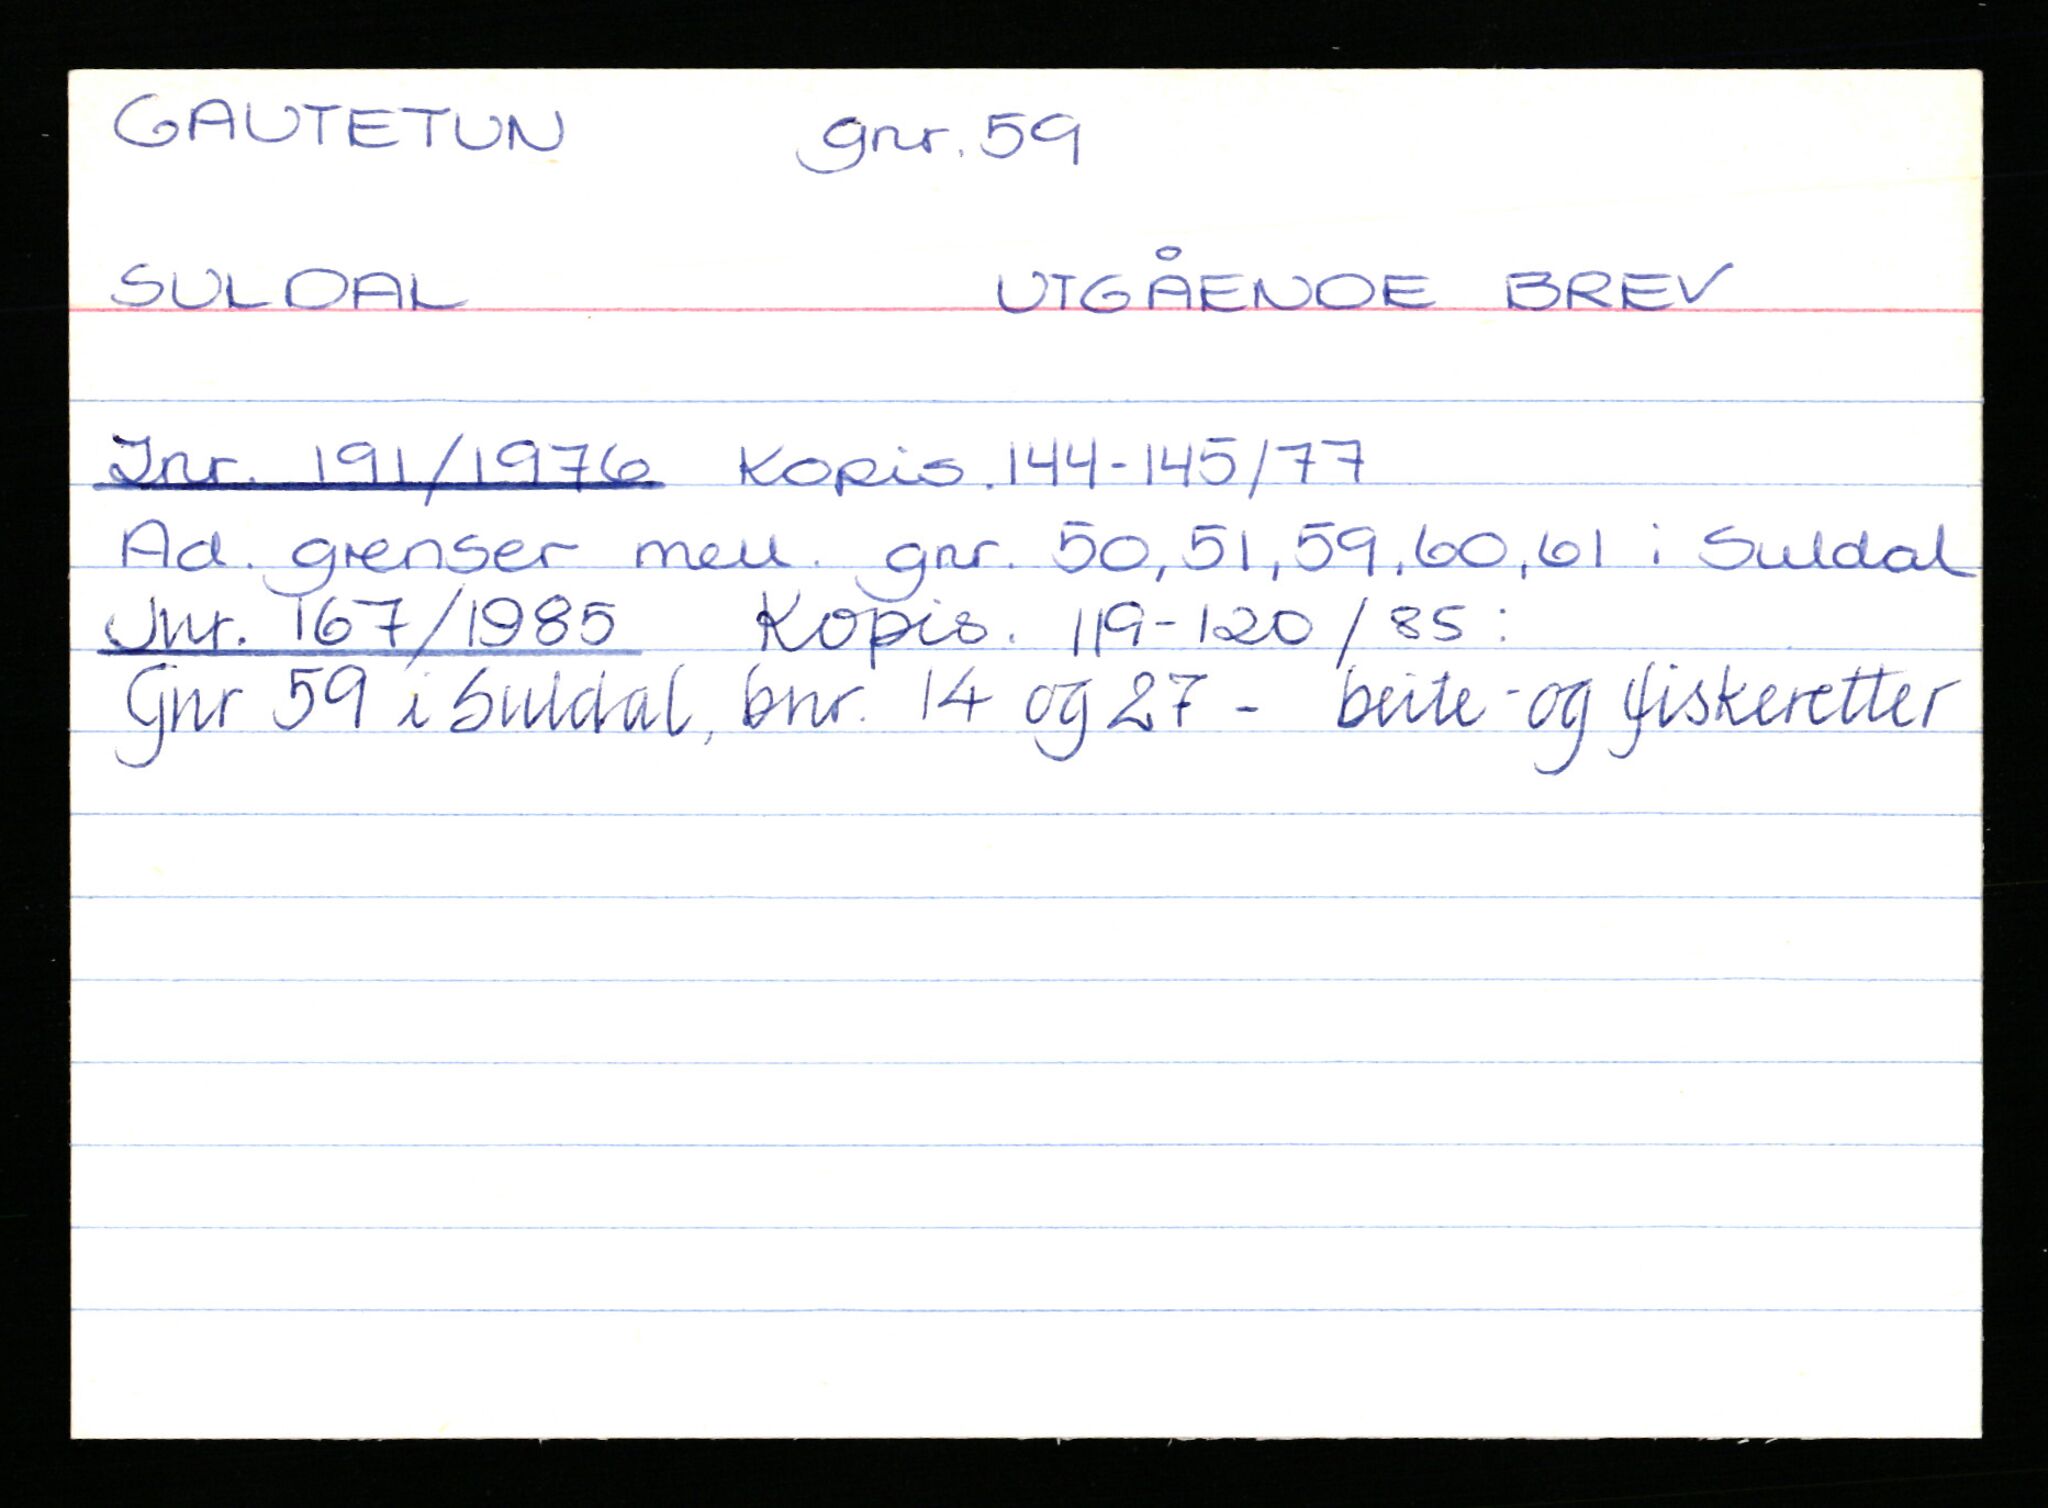 GAUTETUN gnr. 59
SULDAL UTGÅENDE BREV
Jnr. 191/1976 Kopis. 144-145/77
Ad. grenser mell. gnr. 50, 51, 59, 60, 61 i Suldal
Jnr. 167/1985 Kopis. 119-120/85:
Gnr 59 i Suldal, bnr. 14 og 27 - beite- og fiskeretter